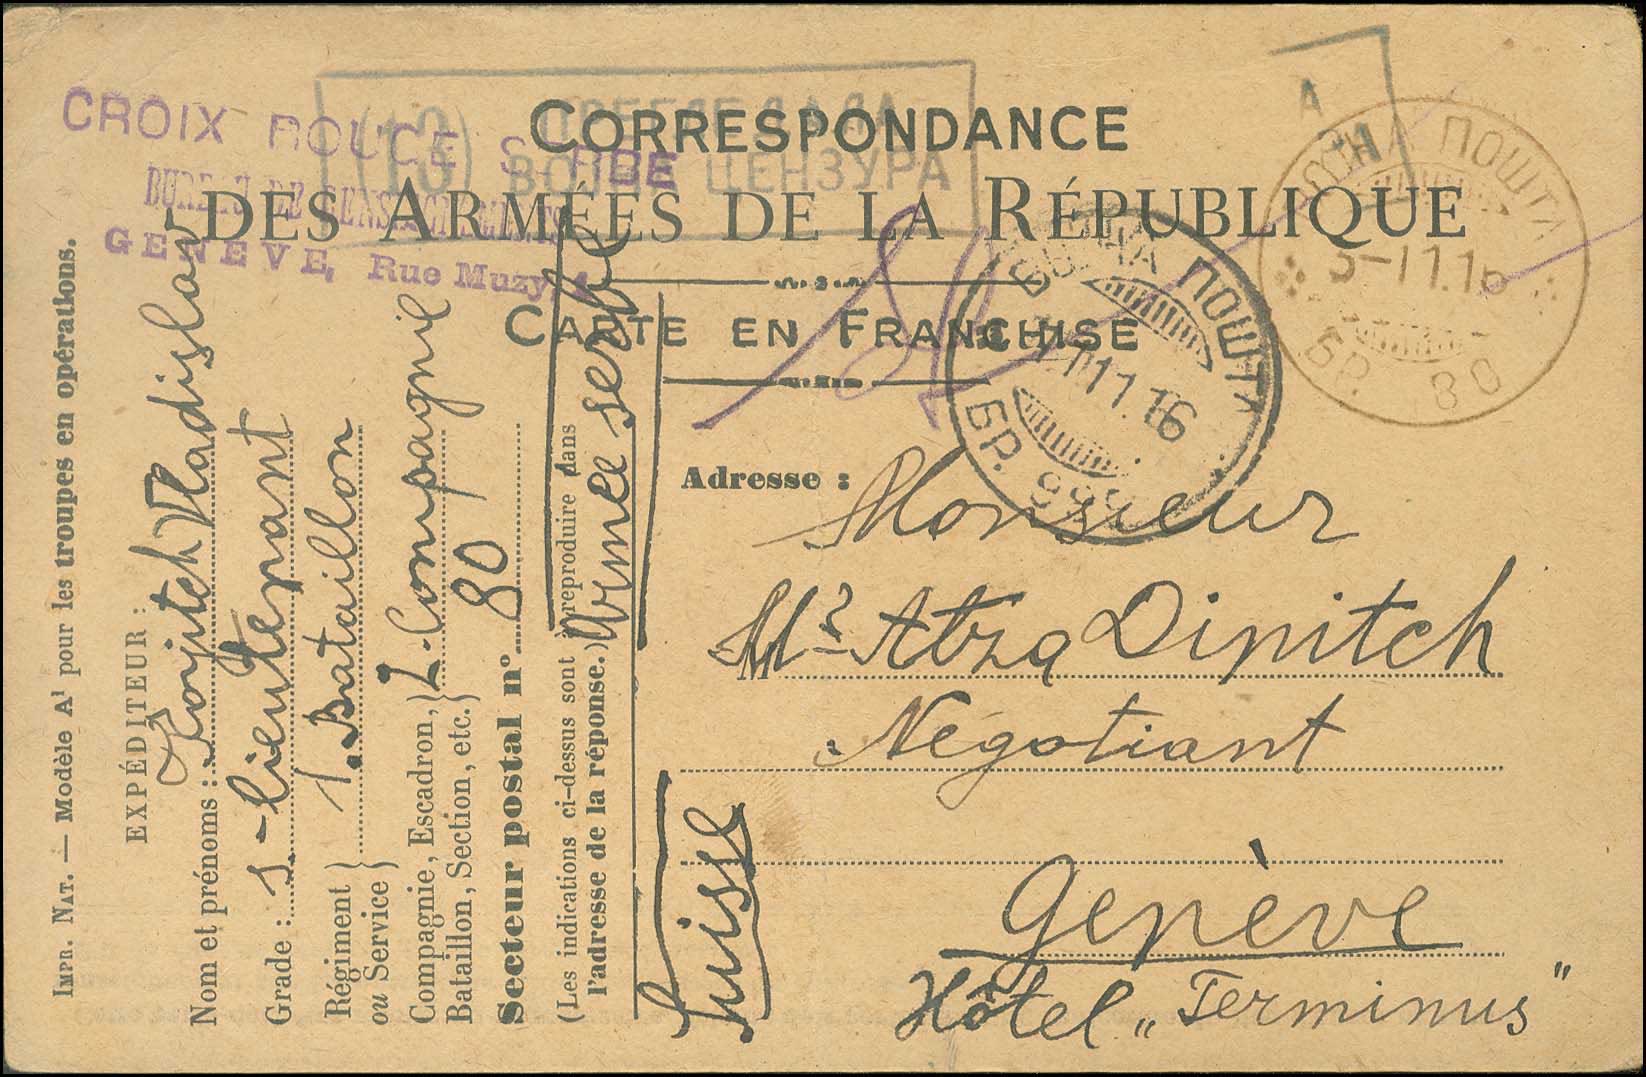 CORRESPONDANCE
DES ARMÉES DE LA RÉPUBLIQUE
CARTE EN FRANCHISE
CROIX ROUGE SERBE
BUREAU DE RENSEIGNEMENTS
GENEVE, Rue Muzy, 4
(10) ПРЕГЛЕДАЛА
ВОЈНА ЦЕНЗУРА
А
ВОЈНА ПОШТА
3-II1.16
БР. 80
ВОЈНА ПОШТА
II1.16
БР. 999
Adresse :
Monsieur
Mr Atza Dinitch
Négotiant
Genève
Hôtel „Terminus"
Suisse
IMPR. NAT. — Modèle A¹ pour les troupes en opérations.
EXPÉDITEUR :
Nom et prénoms : Vladislav
Grade : s-lieutenant
Régiment ou Service } 1. Bataillon
Compagnie, Escadron, Bataillon, Section, etc. } 2. Compagnie
Secteur postal n° 80
(Les indications ci-dessus sont à reproduire dans
l'adresse de la réponse.)
Armée serbe